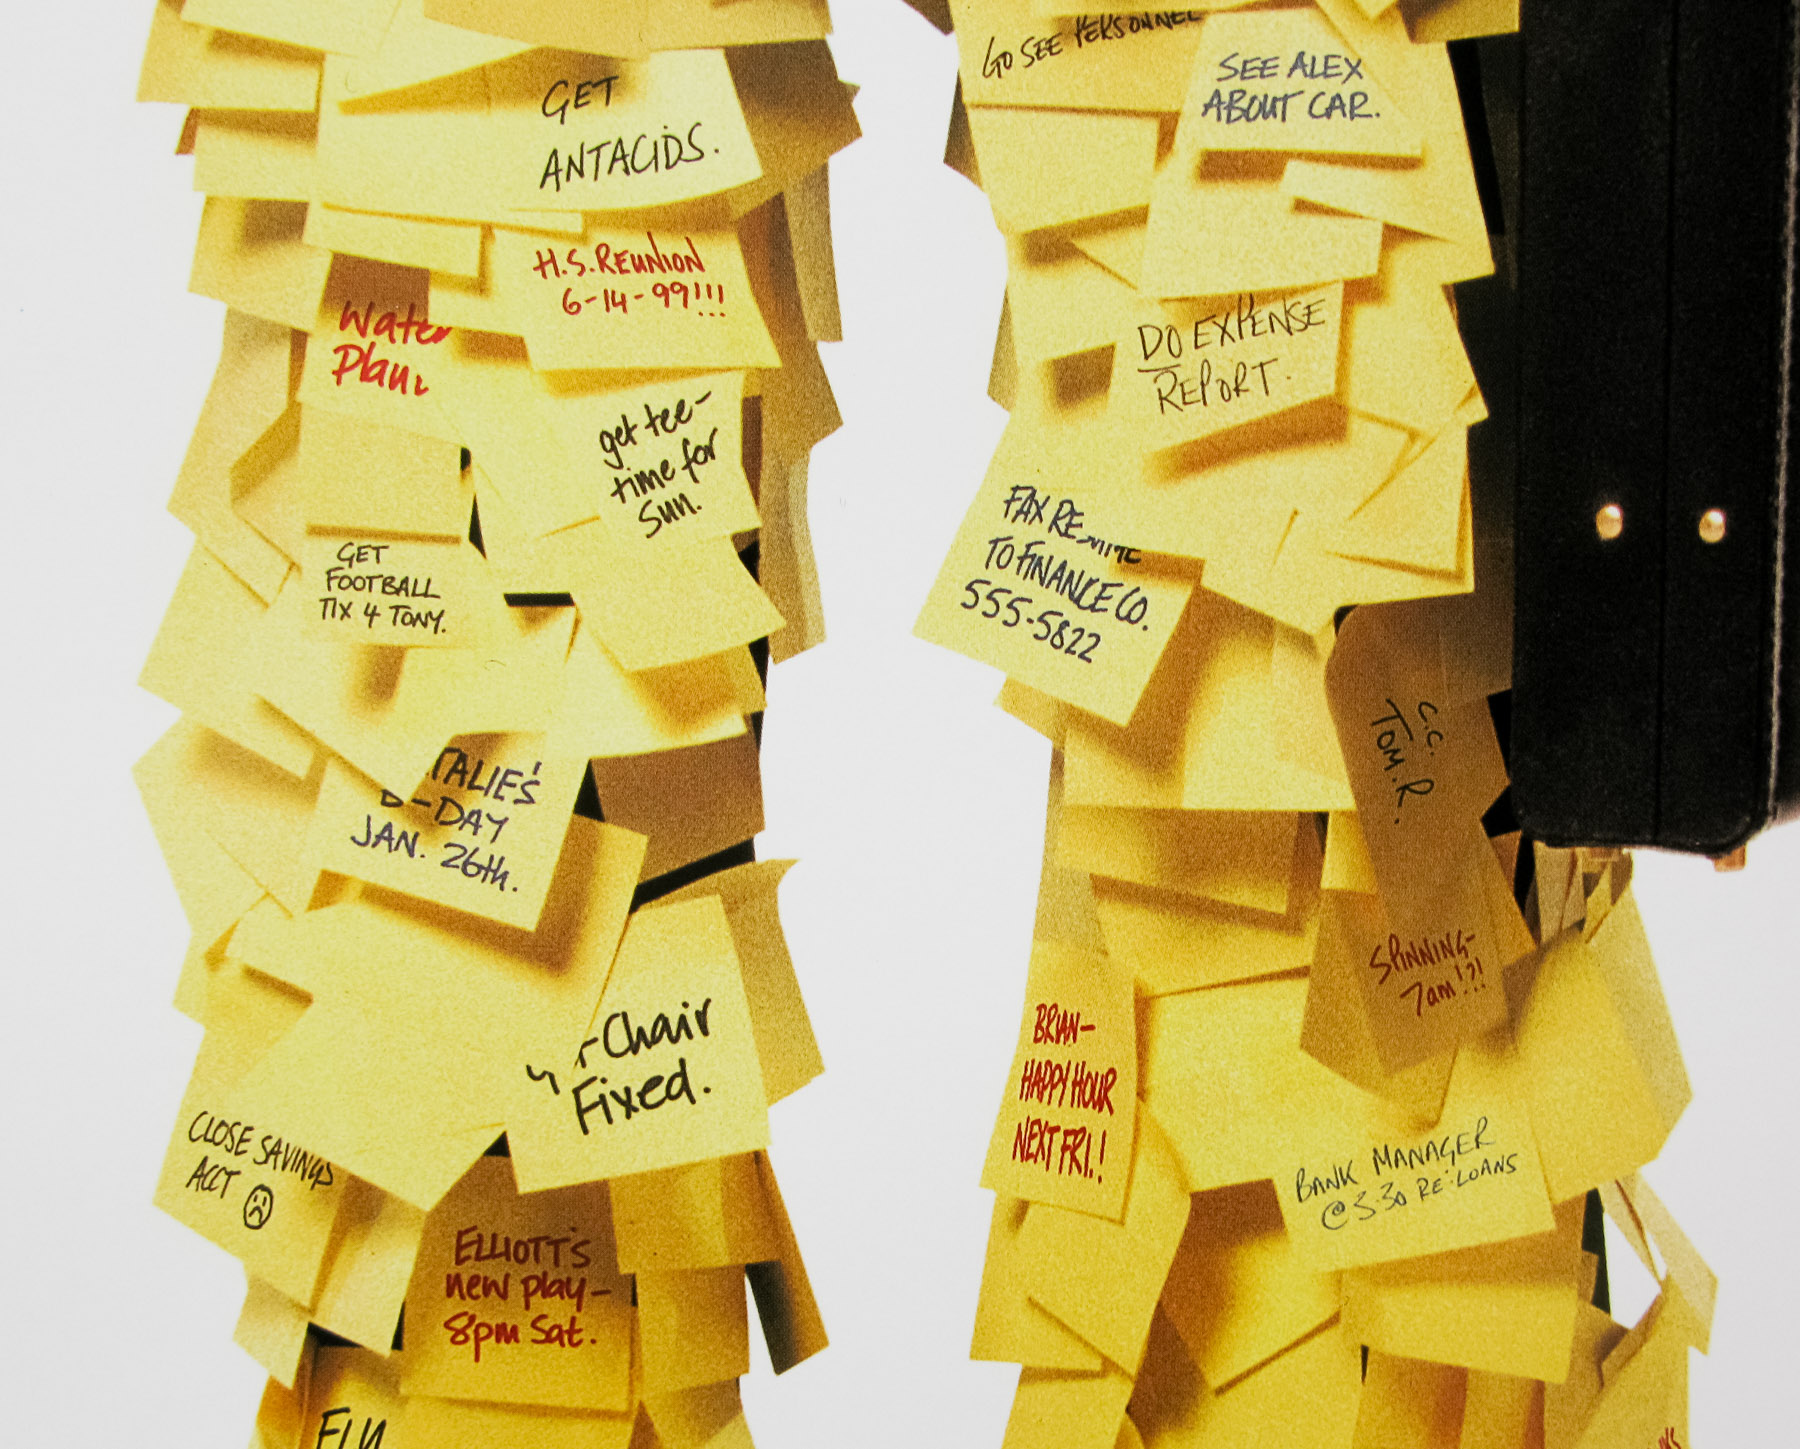 GET
ANTACIDS.
H.S. REUNION
6-14-99!!!
Water
Plan
get tee-
time for
Sun.
GET
FOOTBALL
TIX 4 TONY.
TALIE'S
B-DAY
JAN. 26th.
-Chair
Fixed.
CLOSE SAVINGS
ACCT ☹
ELLIOTT'S
new play-
8pm Sat.
GO SEE PERSONNEL
SEE ALEX
ABOUT CAR.
DO EXPENSE
REPORT.
FAX RESUME
TO FINANCE CO.
555-5822
C.C.
TOM.R.
SPINNING-
7am!?!
BRIAN-
HAPPY HOUR
NEXT FRI.!
BANK MANAGER
@ 3-30 RE: LOANS